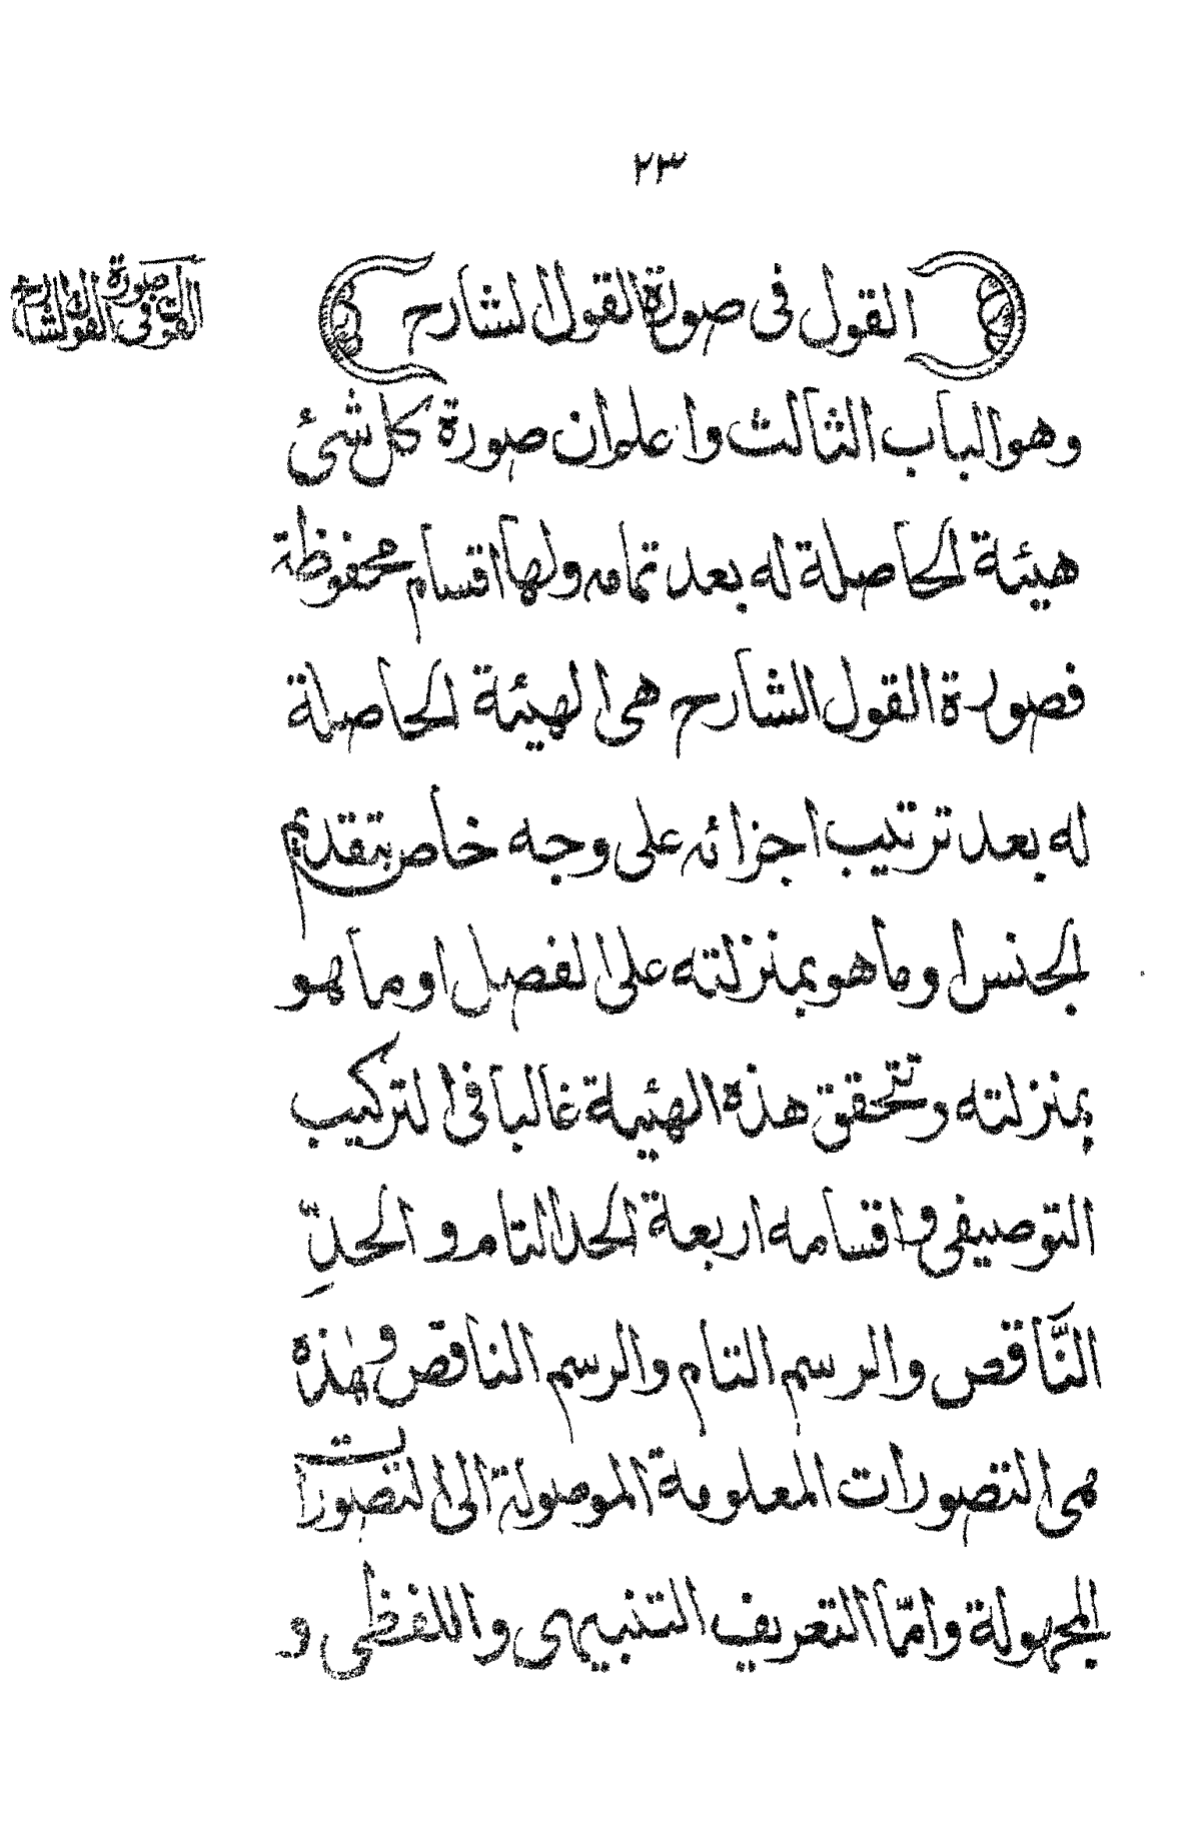 ٢٣
القول في صورة القول الشارح
القول في صورة القول الشارح
وهو الباب الثالث واعلم ان صورة كل شئ
هيئة الحاصلة له بعد تمامه ولها اقسام محفوظة
فصورة القول الشارح هى الهيئة الحاصلة
له بعد ترتيب اجزائه على وجه خاص بتقديم
الجنس او ما هو بمنزلته على الفصل او ما هو
بمنزلته وتتحقق هذه الهيئية غالبا في التركيب
التوصيفى واقسامه اربعة الحد التام و الحدِّ
النَّاقص والرسم التام والرسم الناقص وهذه
هى التصورات المعلومة الموصولة الى التصورات
المجهولة وامّا التعريف التنبيهى واللفظى و